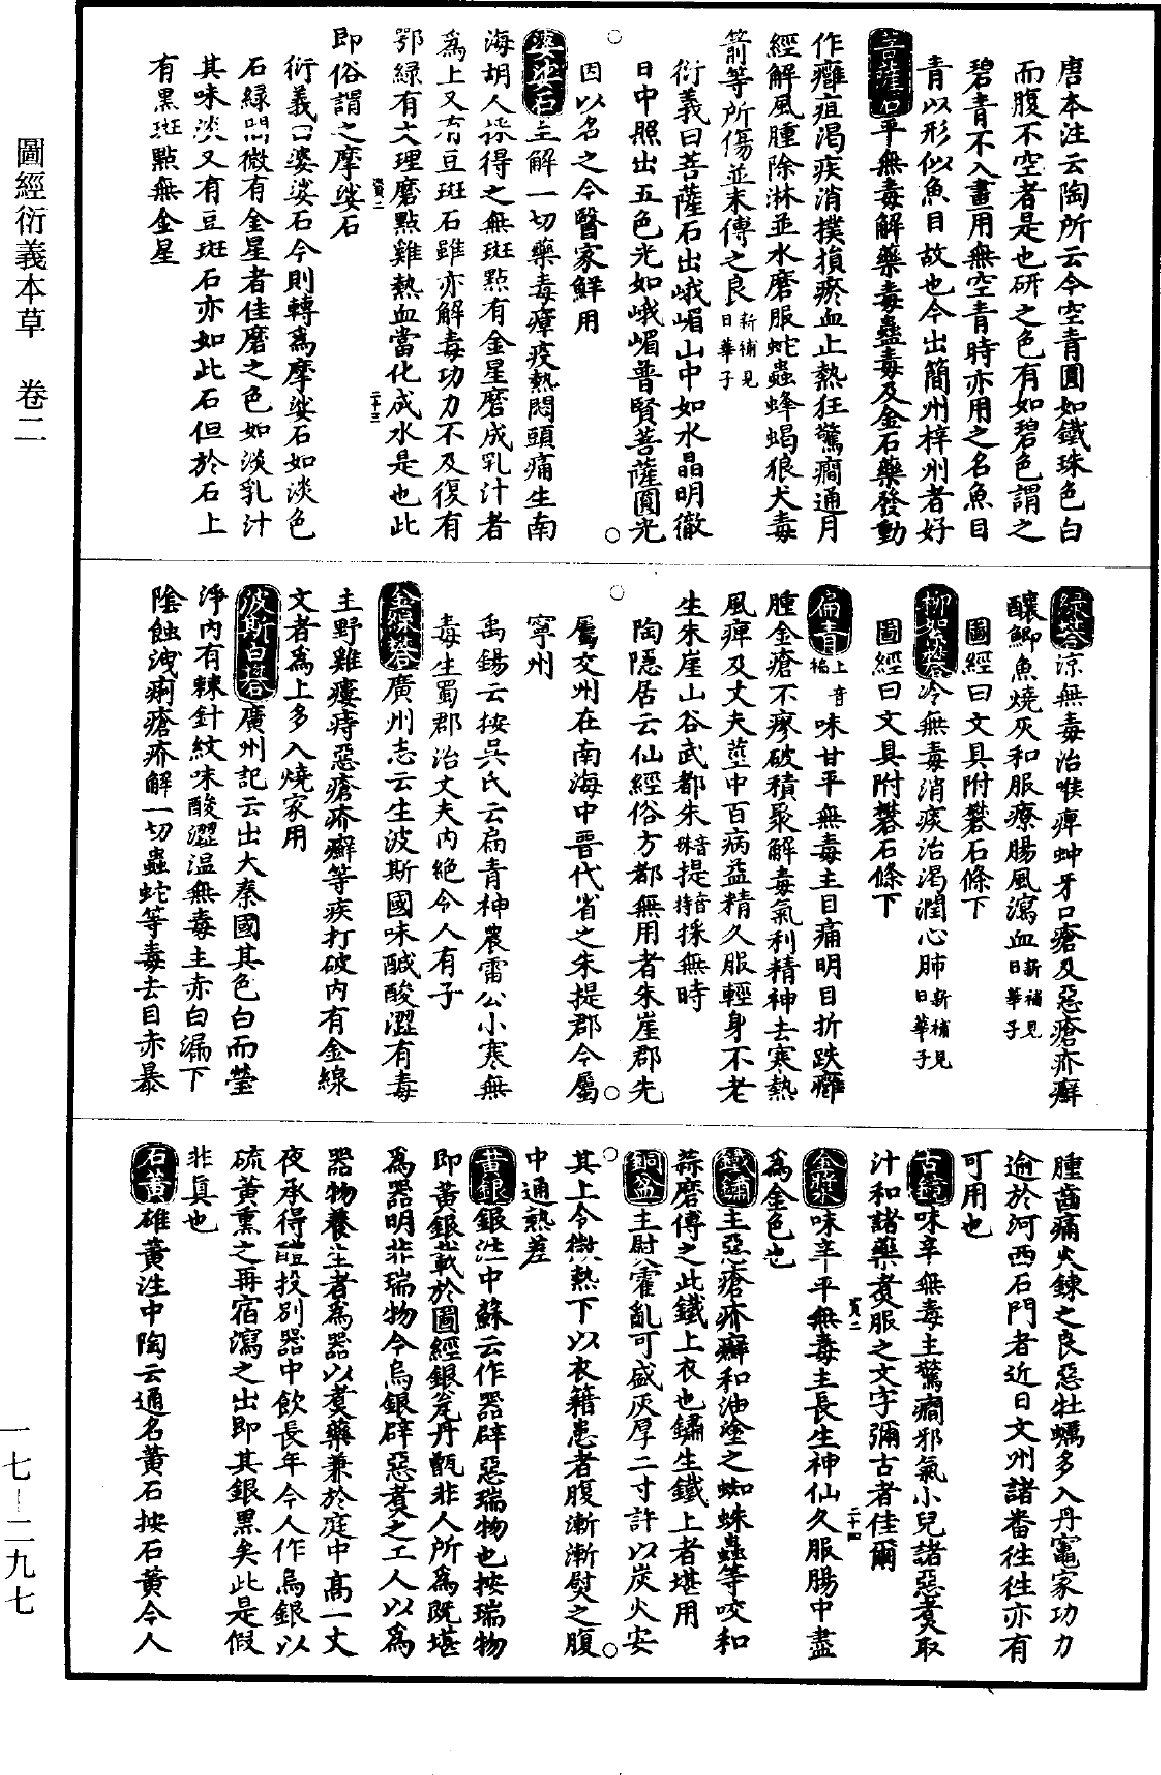 圖經衍義本草　卷二
唐本注云陶所云今空青圓如鐵珠色白
而腹不空者是也研之色有如碧色謂之
碧青不入畫用無空青時亦用之名魚目
青以形似魚目故也今出簡州梓州者好
菩薩石平無毒解藥毒蠱毒及金石藥發動
作癰疽渴疾消撲損瘀血止熱狂驚癇通月
經解風腫除淋並水磨服蛇蟲蜂蝎狼犬毒
箭等所傷並末傅之良新補見日華子
衍義曰菩薩石出峨嵋山中如水晶明徹
日中照出五色光如峨嵋普賢菩薩圓光
因以名之今醫家鮮用
婆娑石主解一切藥毒瘴疫熱悶頭痛生南
海胡人採得之無斑點有金星磨成乳汁者
爲上又有豆斑石雖亦解毒功力不及復有
鄂綠有文理磨點雞熱血當化成水是也此
即俗謂之摩娑石
衍義曰婆娑石今則轉爲摩娑石如淡色
石綠間微有金星者佳磨之色如淡乳汁
其味淡又有豆斑石亦如此石但於石上
有黑斑點無金星
綠鹽涼無毒治喉痺蚛牙口瘡及惡瘡疥癬
釀鯽魚燒灰和服療腸風瀉血新補見日華子
圖經曰文具附礬石條下
柳絮礬冷無毒消痰治渴潤心肺新補見日華子
圖經曰文具附礬石條下
扁青上音褊味甘平無毒主目痛明目折跌癰
腫金瘡不瘳破積聚解毒氣利精神去寒熱
風痺及丈夫莖中百病益精久服輕身不老
生朱崖山谷武都朱音殊提音持採無時
陶隱居云仙經俗方都無用者朱崖郡先
屬交州在南海中晉代省之朱提郡今屬
寧州
禹錫云按吳氏云扁青神農雷公小寒無
毒生蜀郡治丈夫內絕令人有子
金線礬廣州志云生波斯國味鹹酸澀有毒
主野雞瘻痔惡瘡疥癬等疾打破內有金線
文者爲上多入燒家用
波斯白礬廣州記云出大秦國其色白而瑩
淨內有棘針紋味酸澀溫無毒主赤白漏下
陰蝕洩痢瘡疥解一切蟲蛇等毒去目赤暴
腫齒痛火鍊之良惡牡蠣多入丹竈家功力
逾於河西石門者近日文州諸番往往亦有
可用也
古鏡味辛無毒主驚癇邪氣小兒諸惡煮取
汁和諸藥煮服之文字彌古者佳爾
金漿味辛平無毒主長生神仙久服腸中盡
爲金色也
鐵鏽主惡瘡疥癬和油塗之蜘蛛蟲等咬和
蒜磨傅之此鐵上衣也鏽生鐵上者堪用
銅盆主熨霍亂可盛灰厚二寸許以炭火安
其上令微熱下以衣籍患者腹漸漸熨之腹
中通熱差
黃銀銀注中蘇云作器辟惡瑞物也按瑞物
即黃銀載於圖經銀瓮丹甑非人所爲既堪
爲器明非瑞物今烏銀辟惡煮之工人以爲
器物養生者爲器以煮藥兼於庭中高一丈
夜承得醴投別器中飲長年今人作烏銀以
硫黃熏之再宿瀉之出即其銀黑矣此是假
非真也
石黃雄黃注中陶云通名黃石按石黃今人
一七—二九七